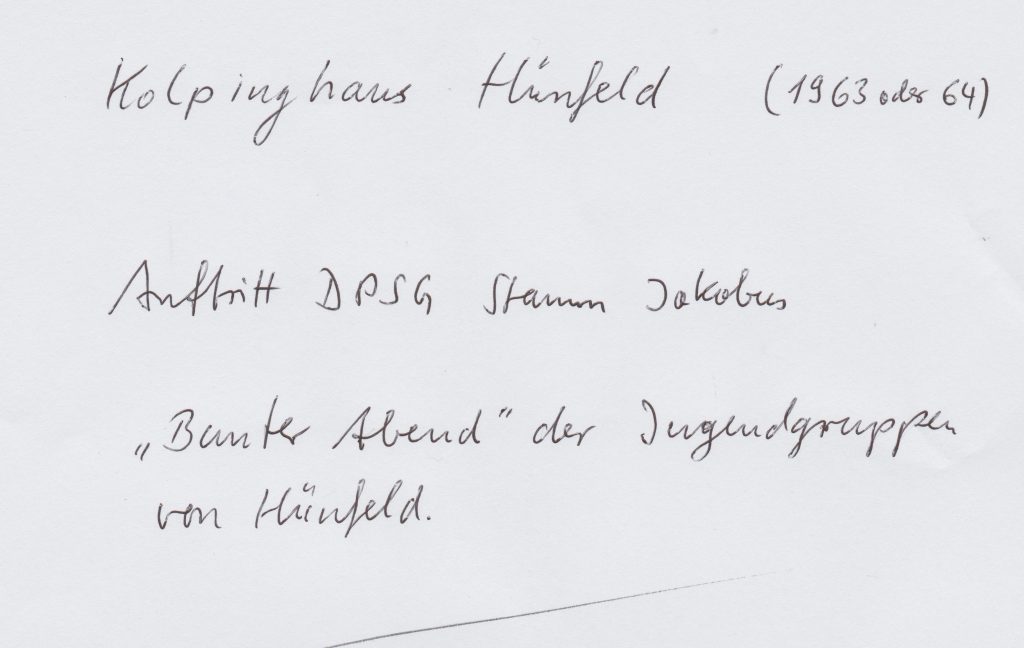 Kolpinghaus Hünfeld (1963 oder 64)
Auftritt DPSG Stamm Jakobus
„Bunter Abend" der Jugendgruppen
von Hünfeld.